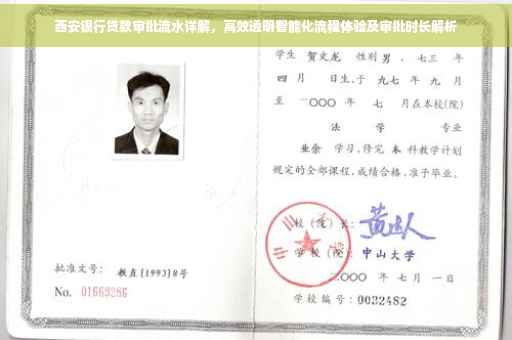 西安银行贷款审批流水详解，高效透明智能化流程体验及审批时长解析
学生 贺文龙 性别 男，七三 年
四 月 日生，于 九七 年 九 月
至 二〇〇〇 年 七 月在本校(院)
法 学 专业
业余 学习，修完 本 科教学计划
规定的全部课程，成绩合格，准予毕业。
校(院)长：
学 校(院)： 中山大学
二〇〇〇 年 七 月 一 日
学校编号：0032482
批准文号： 教直[1993]8号
No. 01669286